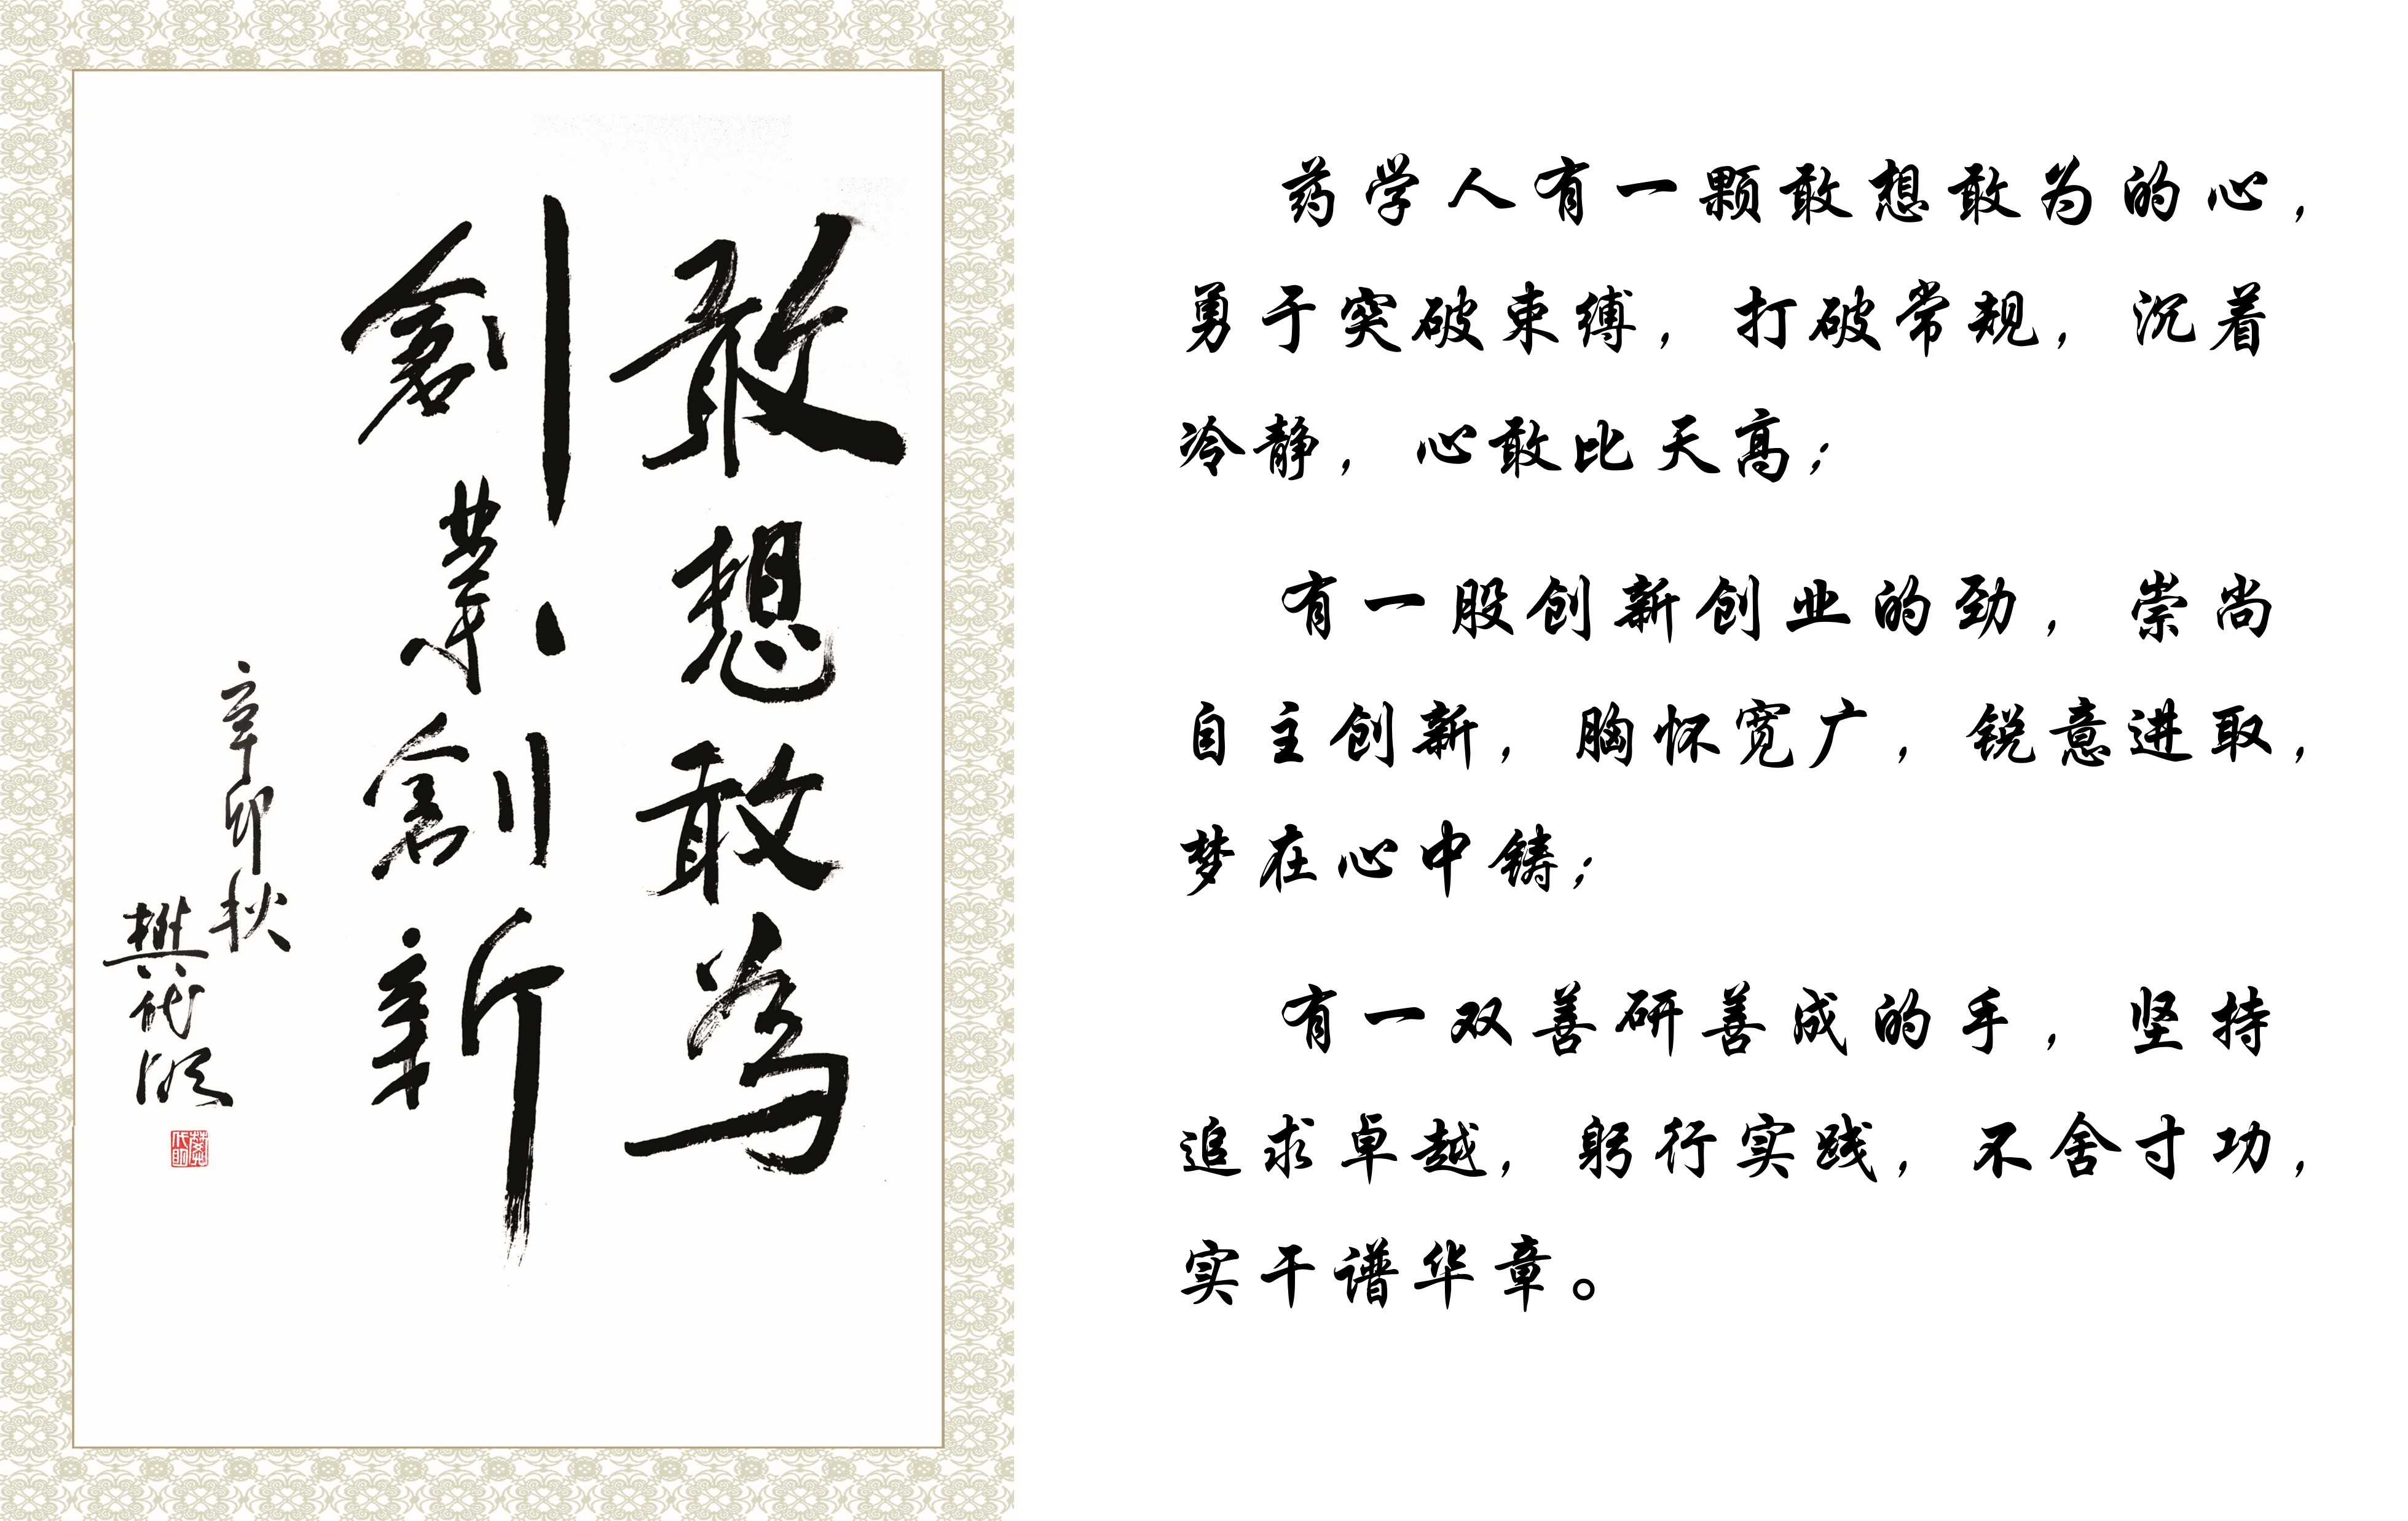 敢想敢為
創業創新
辛卯秋
樊代明
药学人有一颗敢想敢为的心，
勇于突破束缚，打破常规，沉着
冷静，心敢比天高；
有一股创新创业的劲，崇尚
自主创新，胸怀宽广，锐意进取，
梦在心中铸；
有一双善研善成的手，坚持
追求卓越，躬行实践，不舍寸功，
实干谱华章。